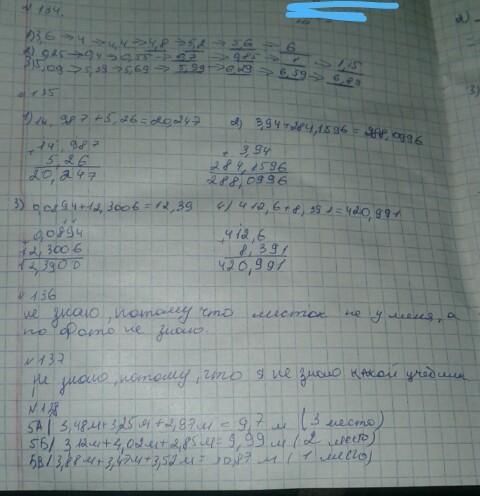 № 134.
1) 3,6 → 4 → 4,4 → 4,8 → 5,2 → 5,6 → 6
2) 0,25 → 0,4 → 0,55 → 0,7 → 0,85 → 1 → 1,15
3) 5,09 → 5,39 → 5,69 → 5,99 → 6,29 → 6,59 → 6,89
№ 135
1) 14,987 + 5,26 = 20,247 2) 3,94 + 284,1596 = 288,0996
+ 14,987 + 3,94
5,26 284,1596
20,247 288,0996
3) 0,0894 + 12,3006 = 12,39 4) 412,6 + 8,391 = 420,991
0,0894 + 412,6
12,3006 8,391
12,3900 420,991
№ 136
не знаю, потому что листок не у меня, а
по фото не знаю.
№ 137
не знаю, потому, что я не знаю какой учебник
№ 138
5А) 3,48м + 3,25м + 2,97м = 9,7 м (3 место)
5Б) 3,12м + 4,02м + 2,85м = 9,99 м (2 место)
5В) 3,88м + 3,47м + 3,52м = 10,87 м (1 место)
2)
3)